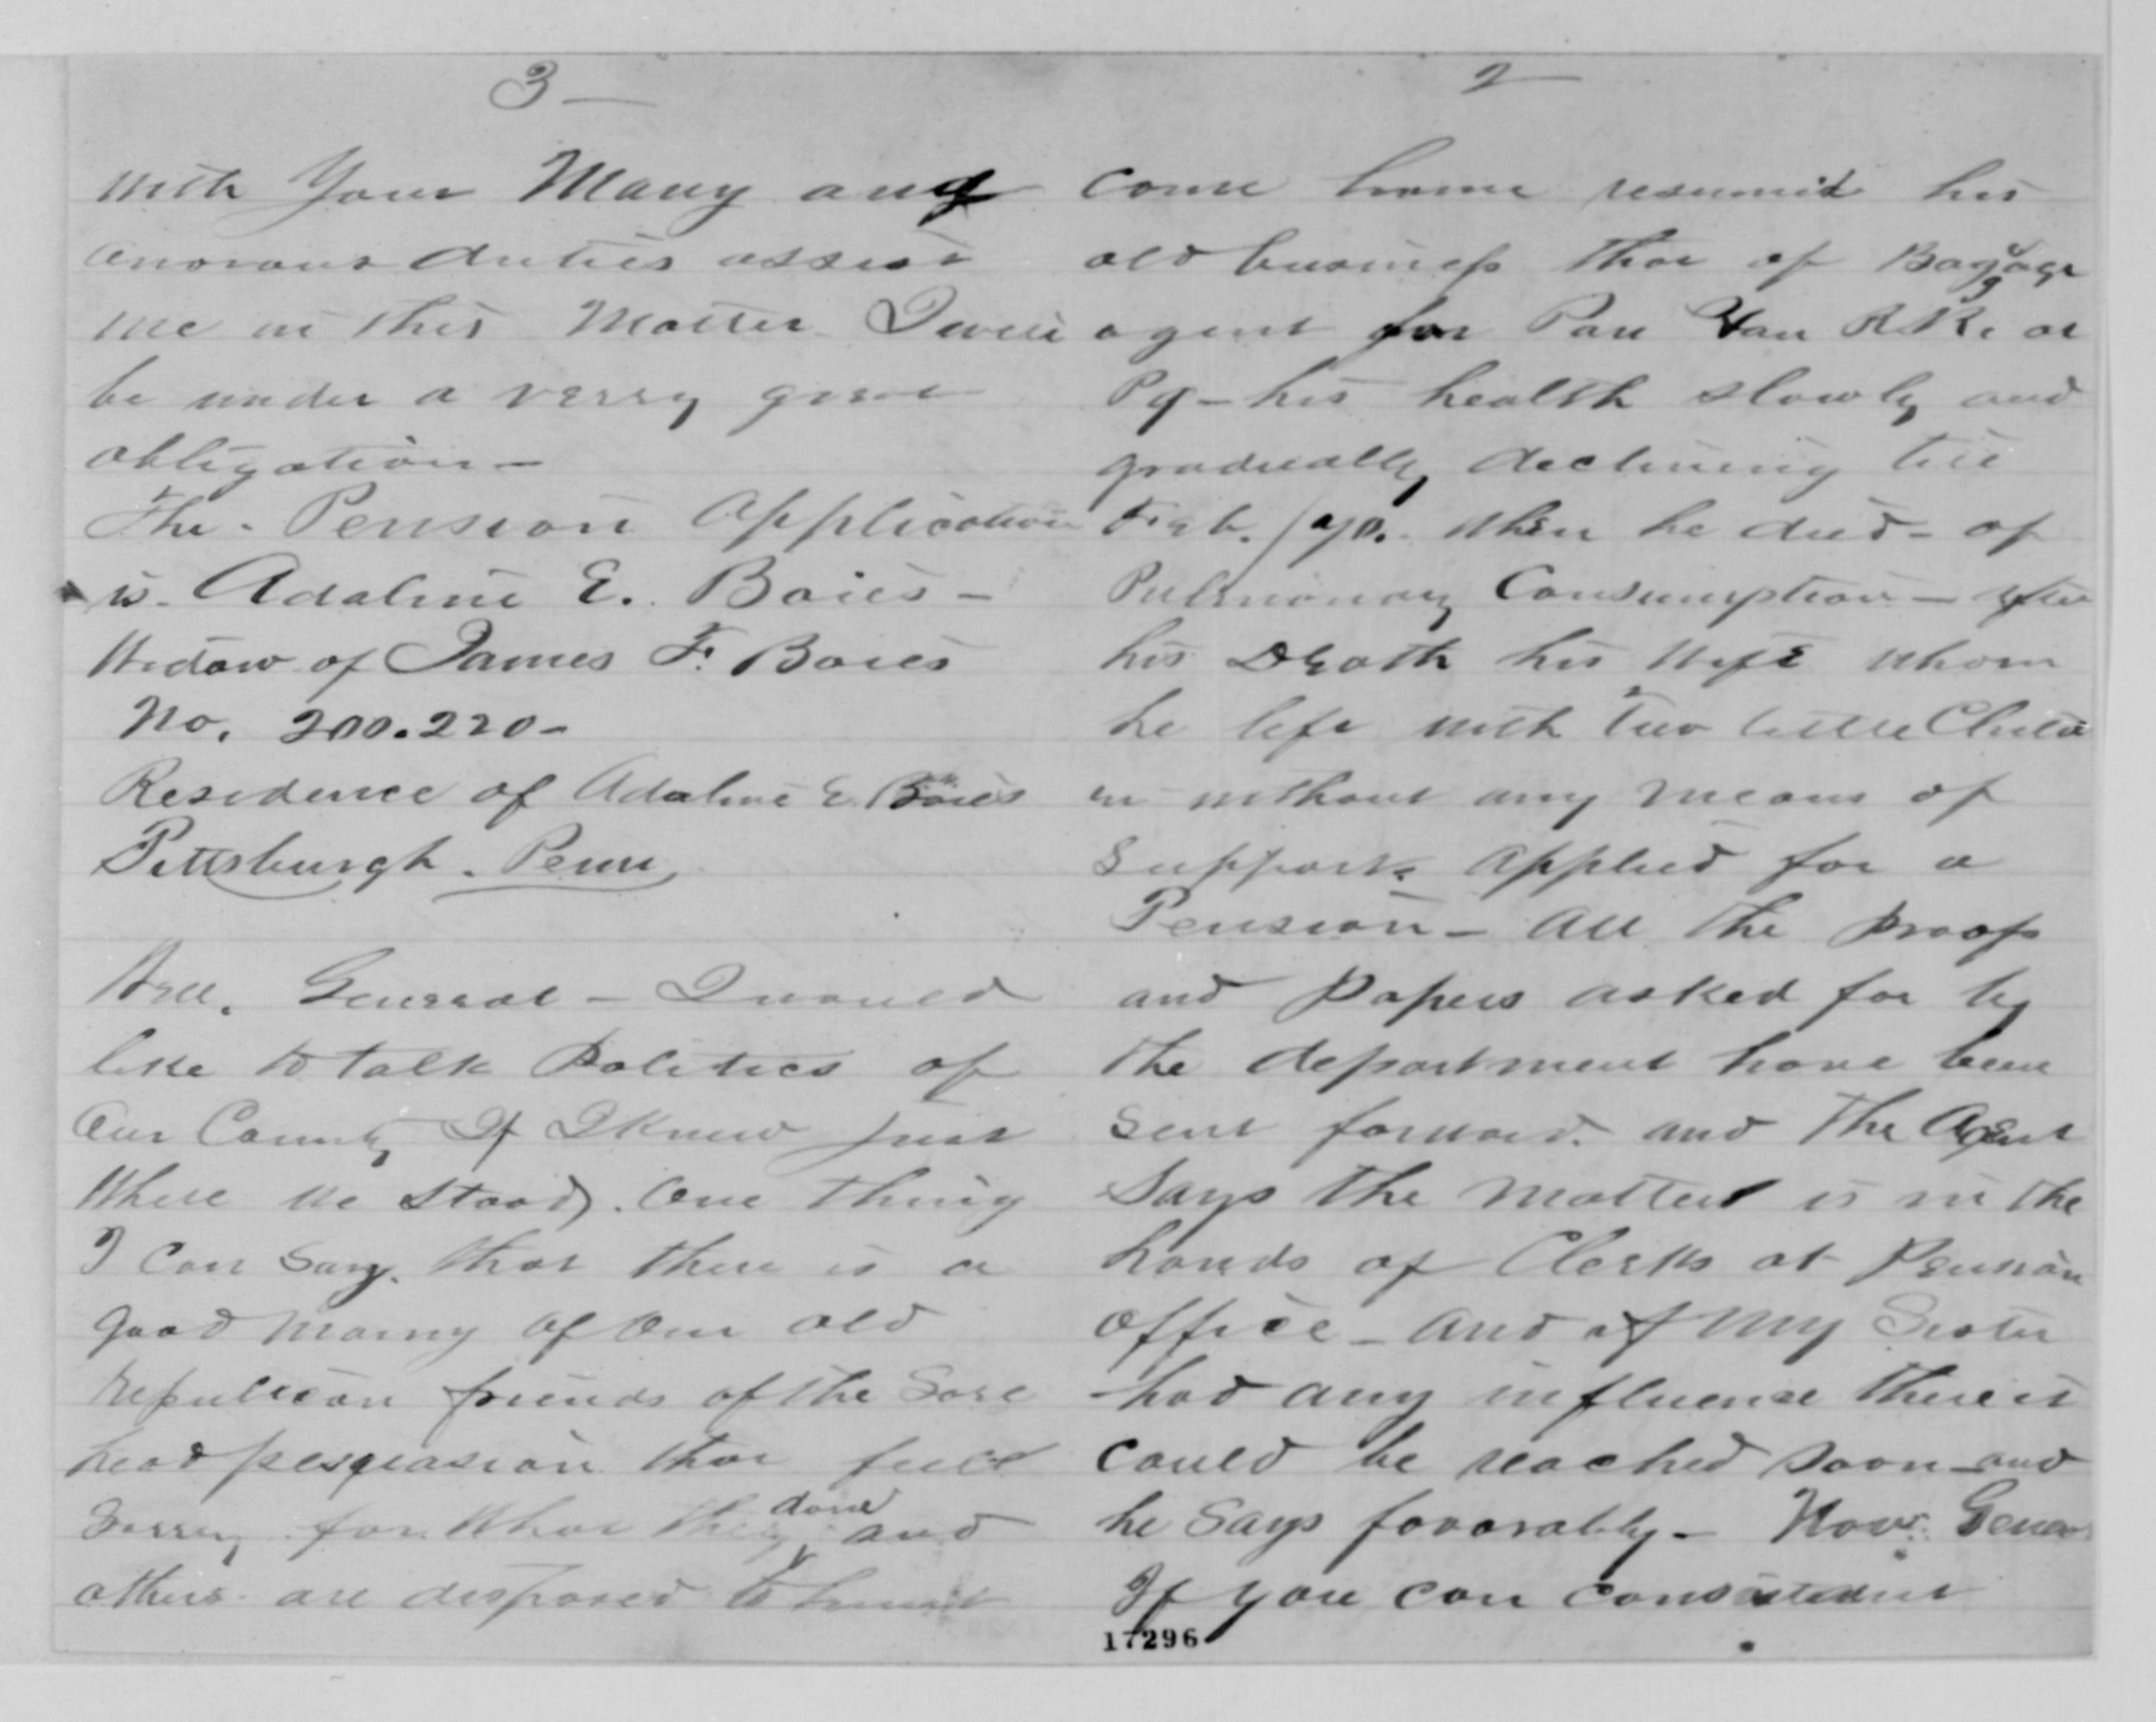 2
come home resumed his
old business that of Baggage
agent for Pan Han RR. at
Pg - his health slowly and
gradually declining till
Feb. /70. when he died - of
Pulmonary Consumption - after
his Death his wife whom
he left with two little Childr
en without any means of
Support. applied for a
Pension - All the proofs
and Papers asked for by
the department have been
Sent forward. and the Agent
Says the matter is in the
hands of Clerks at Pension
office - and if My Sister
had any influence there it
could be reached soon - and
he Says favorably - Now Genera
If you can consistent
17296
3 -
with Your Many and
anorous duties assist
me in this Matter I will
be under a verry great
obligation -
The. Pension Application
is. Adaline E. Boies -
Widow of James F. Boies
No. 200.220 -
Residence of Adaline E Boies
Pittsburgh. Penn
Well. General - I would
like to talk Politics of
our County If I knew just
Where we stood. One thing
I can Say. that there is a
good many of our old
republican friends of the Sore
head persuasion that feel
Sorry for What they done and
others are disposed to